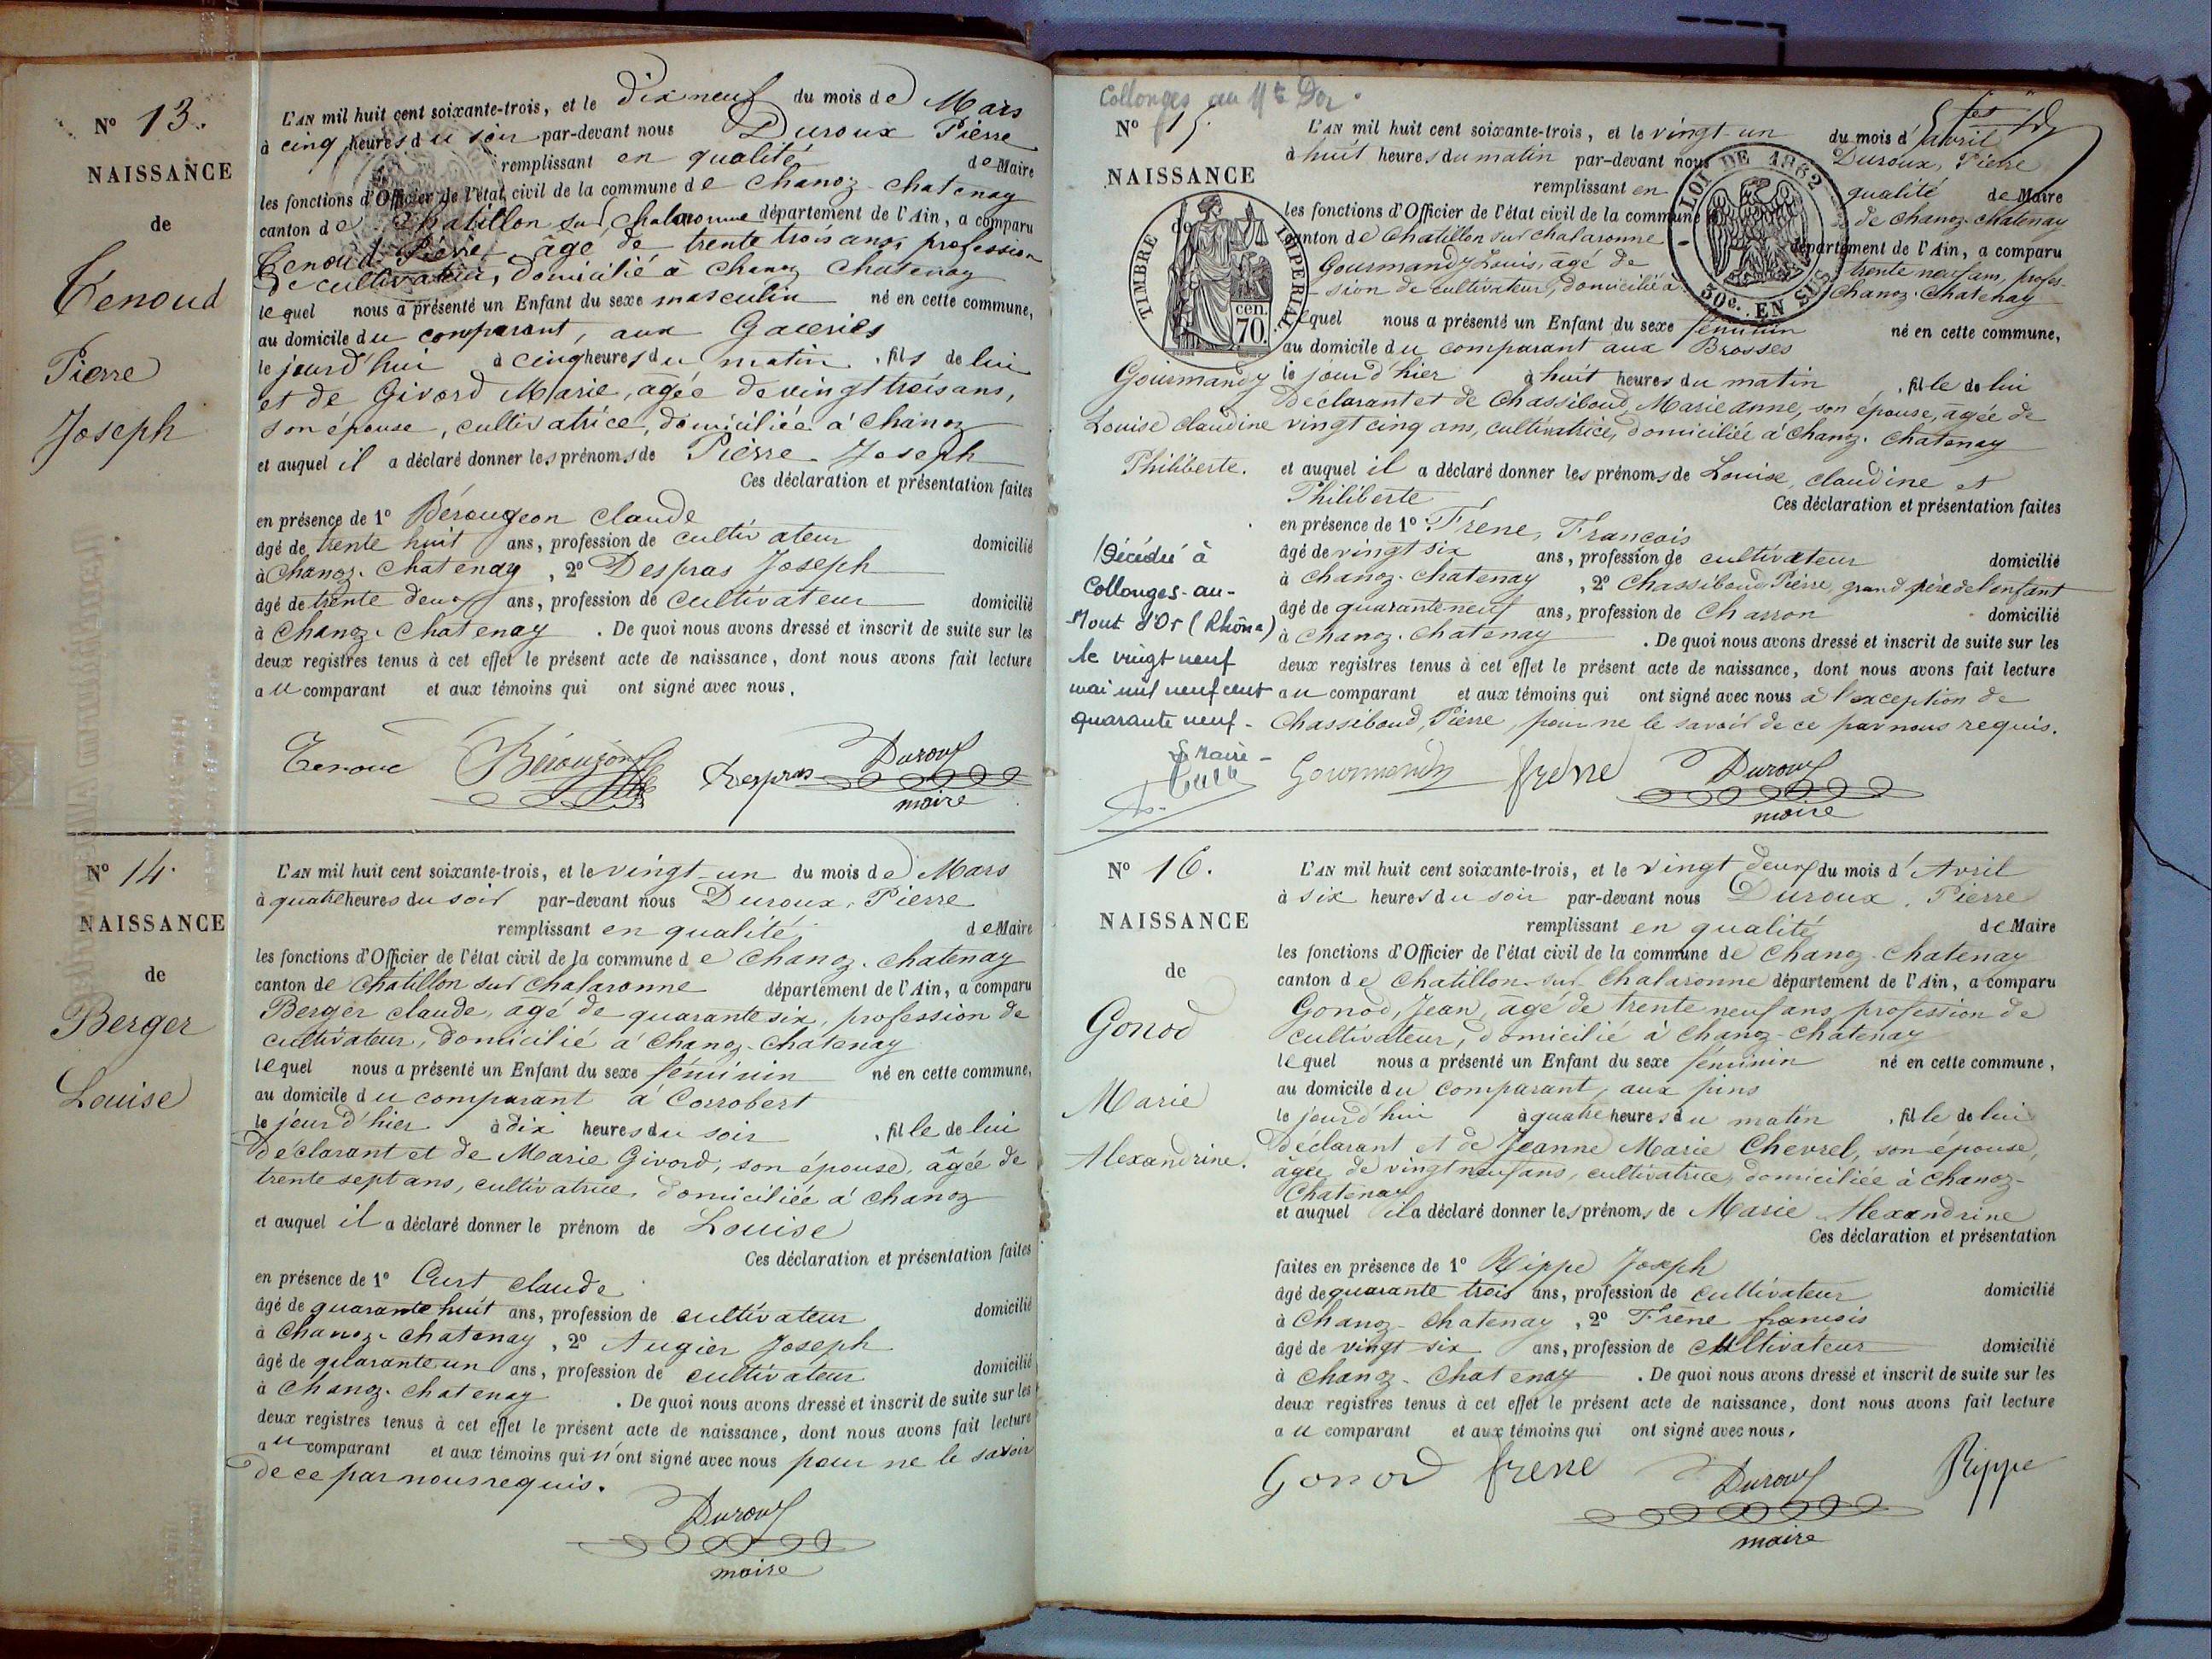 Nº 13.
NAISSANCE
de
Tenoud
Pierre
Joseph
L'AN mil huit cent soixante-trois, et le dix neuf du mois de Mars
à cinq heures du soir par-devant nous Duroux Pierre
remplissant en qualité de Maire
les fonctions d'Officier de l'état civil de la commune de Chanoz-Chatenay
canton de Chatillon sur Chalaronne département de l'Ain, a comparu
Tenoud Pierre âgé de trente trois ans, profession
de cultivateur, domicilié à Chanoz Chatenay
lequel nous a présenté un Enfant du sexe masculin né en cette commune,
au domicile du comparant, aux
le jourd'hui à cinq heures du matin, fils de lui
et de Givord Marie, agée de vingt trois ans,
son épouse, cultivatrice, domiciliée à Chanoz
et auquel il a déclaré donner les prénoms de Pierre Joseph
Ces déclaration et présentation faites
en présence de 1º Béroujon Claude
âgé de trente huit ans, profession de cultivateur domicilié
à Chanoz-Chatenay, 2º Despras Joseph
âgé de trente deux ans, profession de cultivateur domicilié
à Chanoz-Chatenay. De quoi nous avons dressé et inscrit de suite sur les
deux registres tenus à cet effet le présent acte de naissance, dont nous avons fait lecture
au comparant et aux témoins qui ont signé avec nous.
Béroujon Despras Duroux
maire
Nº 14.
NAISSANCE
de
Berger
Louise
L'AN mil huit cent soixante-trois, et le vingt-un du mois de Mars
à quatre heures du soir par-devant nous Duroux, Pierre
remplissant en qualité de Maire
les fonctions d'Officier de l'état civil de la commune de Chanoz-Chatenay
canton de Chatillon sur Chalaronne département de l'Ain, a comparu
Berger Claude, âgé de quarante six, profession de
cultivateur, domicilié à Chanoz-Chatenay
lequel nous a présenté un Enfant du sexe féminin né en cette commune,
au domicile du comparant à Corrobert
le jour d'hier à dix heures du soir, fille de lui
Déclarant et de Marie Givord, son épouse, âgée de
trente sept ans, cultivatrice, domiciliée à Chanoz
et auquel il a déclaré donner le prénom de Louise
Ces déclaration et présentation faites
en présence de 1º Curt Claude
âgé de quarante huit ans, profession de cultivateur domicilié
à Chanoz-Chatenay, 2º Augier Joseph
âgé de quarante un ans, profession de cultivateur domicilié
à Chanoz-Chatenay. De quoi nous avons dressé et inscrit de suite sur les
deux registres tenus à cet effet le présent acte de naissance, dont nous avons fait lecture
au comparant et aux témoins qui n'ont signé avec nous pour ne le savoir
de ce par nous requis.
Duroux
maire
Collonges au Mt Dor.
Nº 15.
NAISSANCE
de
TIMBRE IMPERIAL
70 cen.
LOI DE 1862
50c. EN SUS
Gourmandy
Louise Claudine
Philiberte.
L'AN mil huit cent soixante-trois, et le vingt-un du mois d'avril
à huit heures du matin par-devant nous Duroux, Pierre
remplissant en qualité de Maire
les fonctions d'Officier de l'état civil de la commune de Chanoz-Chatenay
canton de Chatillon sur Chalaronne département de l'Ain, a comparu
Gourmandy Louis, âgé de trente neuf ans, profes-
sion de cultivateur, domicilié à Chanoz-Chatenay
lequel nous a présenté un Enfant du sexe féminin né en cette commune,
au domicile du comparant aux Brosses
le jour d'hier à huit heures du matin, fille de lui
Déclarant et de Chassiboud, Marie anne, son épouse, âgée de
vingt cinq ans, cultivatrice, domiciliée à Chanoz-Chatenay
et auquel il a déclaré donner les prénoms de Louise, Claudine et
Philiberte
Ces déclaration et présentation faites
en présence de 1º Frene, François
âgé de vingt six ans, profession de cultivateur domicilié
à Chanoz-Chatenay, 2º Chassiboud Pierre, grand père de l'enfant
âgé de quarante neuf ans, profession de Charron domicilié
à Chanoz-Chatenay. De quoi nous avons dressé et inscrit de suite sur les
deux registres tenus à cet effet le présent acte de naissance, dont nous avons fait lecture
au comparant et aux témoins qui ont signé avec nous à l'exception de
Chassiboud, Pierre, pour ne le savoir de ce par nous requis.
Décédée à
Collonges-au-
Mont d'Or (Rhône)
le vingt neuf
mai mil neuf cent
quarante neuf-
Le Maire-
Gourmandy frene Duroux
maire
Nº 16.
NAISSANCE
de
Gonod
Marie
Alexandrine.
L'AN mil huit cent soixante-trois, et le vingt deux du mois d'Avril
à six heures du soir par-devant nous Duroux, Pierre
remplissant en qualité de Maire
les fonctions d'Officier de l'état civil de la commune de Chanoz-Chatenay
canton de Chatillon-sur-Chalaronne département de l'Ain, a comparu
Gonod, Jean, âgé de trente neuf ans, profession de
cultivateur, domicilié à Chanoz-Chatenay
lequel nous a présenté un Enfant du sexe féminin né en cette commune,
au domicile du comparant, aux pins
le jourd'hui à quatre heures du matin, fille de lui
Déclarant et de Jeanne Marie Chevrel, son épouse,
âgée de vingt neuf ans, cultivatrice, domiciliée à Chanoz-
Chatenay
et auquel il a déclaré donner les prénoms de Marie Alexandrine
Ces déclaration et présentation
faites en présence de 1º Rippe Joseph
âgé de quarante trois ans, profession de cultivateur domicilié
à Chanoz-Chatenay, 2º Frene françois
âgé de vingt six ans, profession de cultivateur domicilié
à Chanoz-Chatenay. De quoi nous avons dressé et inscrit de suite sur les
deux registres tenus à cet effet le présent acte de naissance, dont nous avons fait lecture
au comparant et aux témoins qui ont signé avec nous.
Gonod frene Duroux Rippe
maire